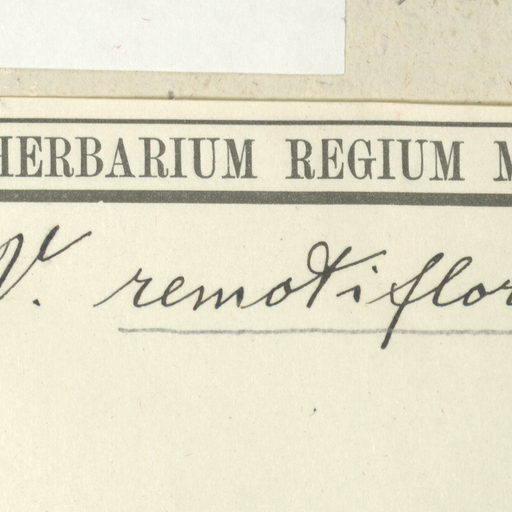 HERBARIUM REGIUM M
V. remotiflor